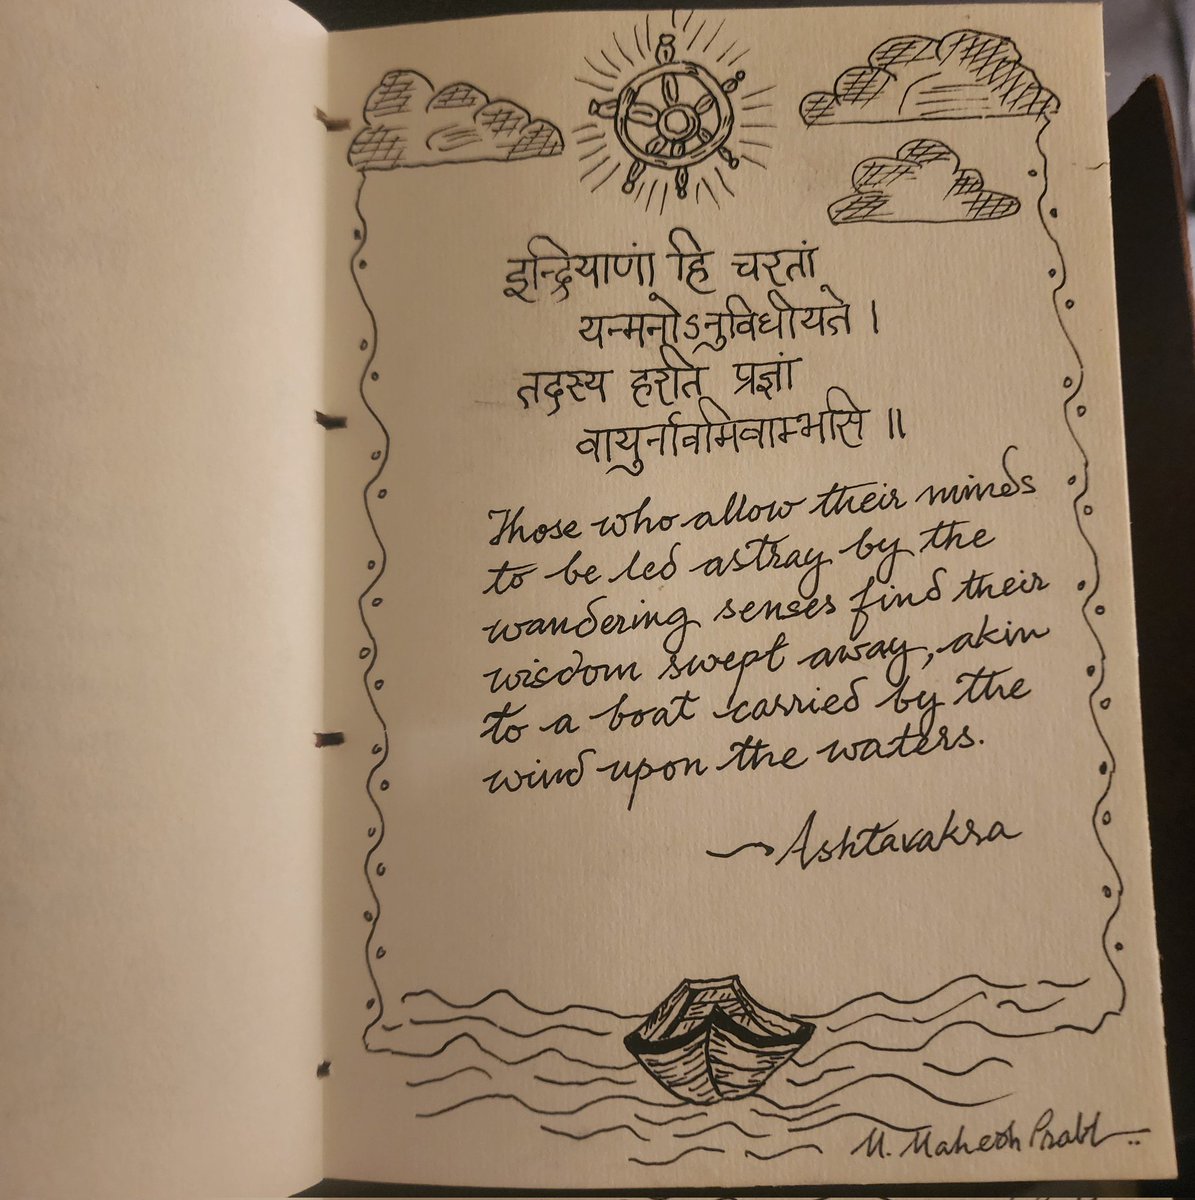 इन्द्रियाणां हि चरतां
यन्मनोऽनुविधीयते ।
तदस्य हरति प्रज्ञां
वायुर्नावमिवाम्भसि ॥
Those who allow their minds
to be led astray by the
wandering senses find their
wisdom swept away, akin
to a boat carried by the
wind upon the waters.
~Ashtavakra
M. Mahesh Prabhu